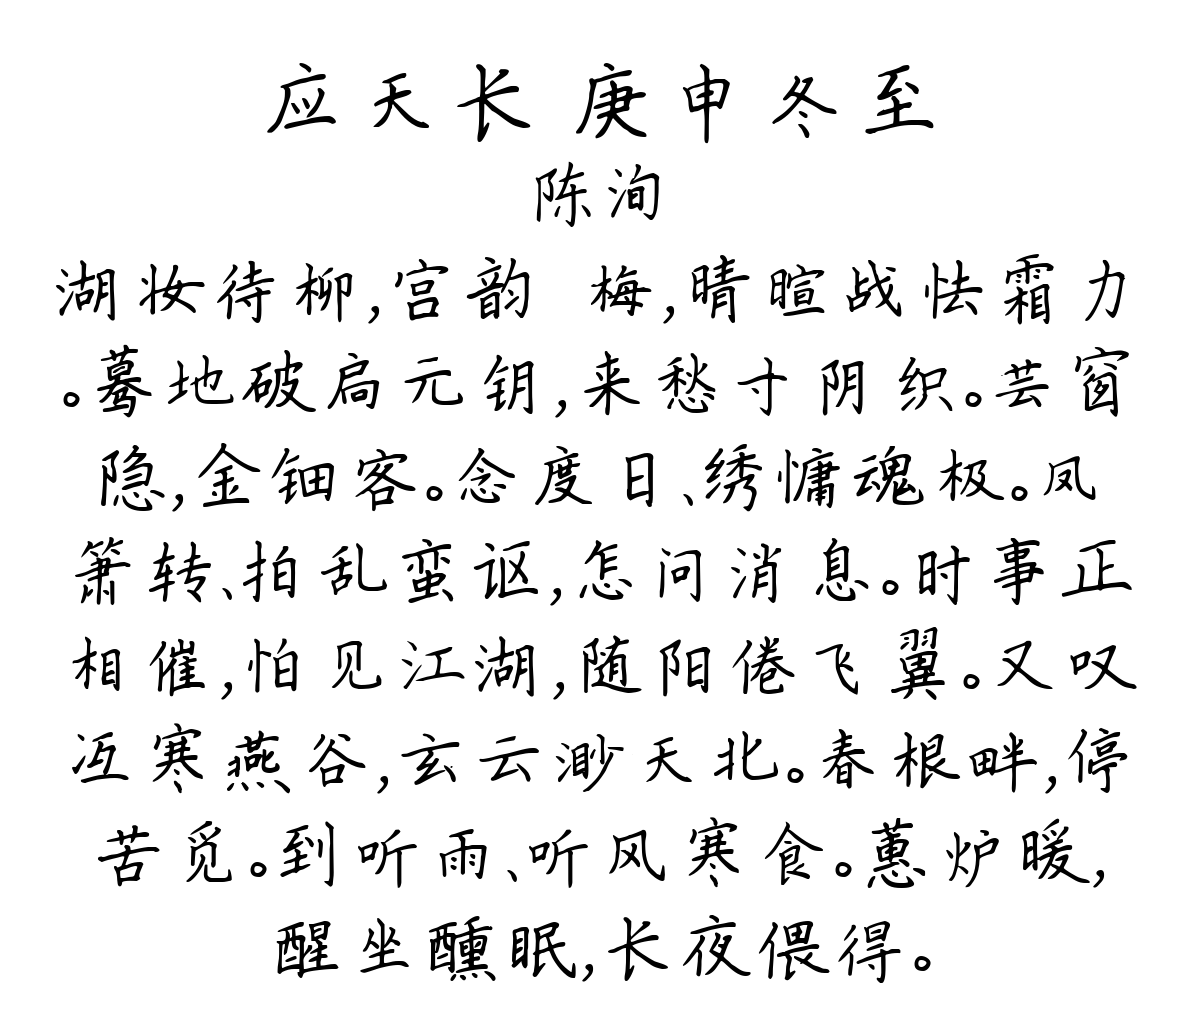 应天长 庚申冬至
陈洵
湖妆待柳,宫韵 梅,晴暄战怯霜力
。蓦地破扃元钥,来愁寸阴织。芸窗
隐,金钿客。念度日、绣慵魂极。凤
箫转、拍乱蛮讴,怎问消息。时事正
相催,怕见江湖,随阳倦飞翼。又叹
冱寒燕谷,玄云渺天北。春根畔,停
苦觅。到听雨、听风寒食。蕙炉暖,
醒坐醺眠,长夜偎得。